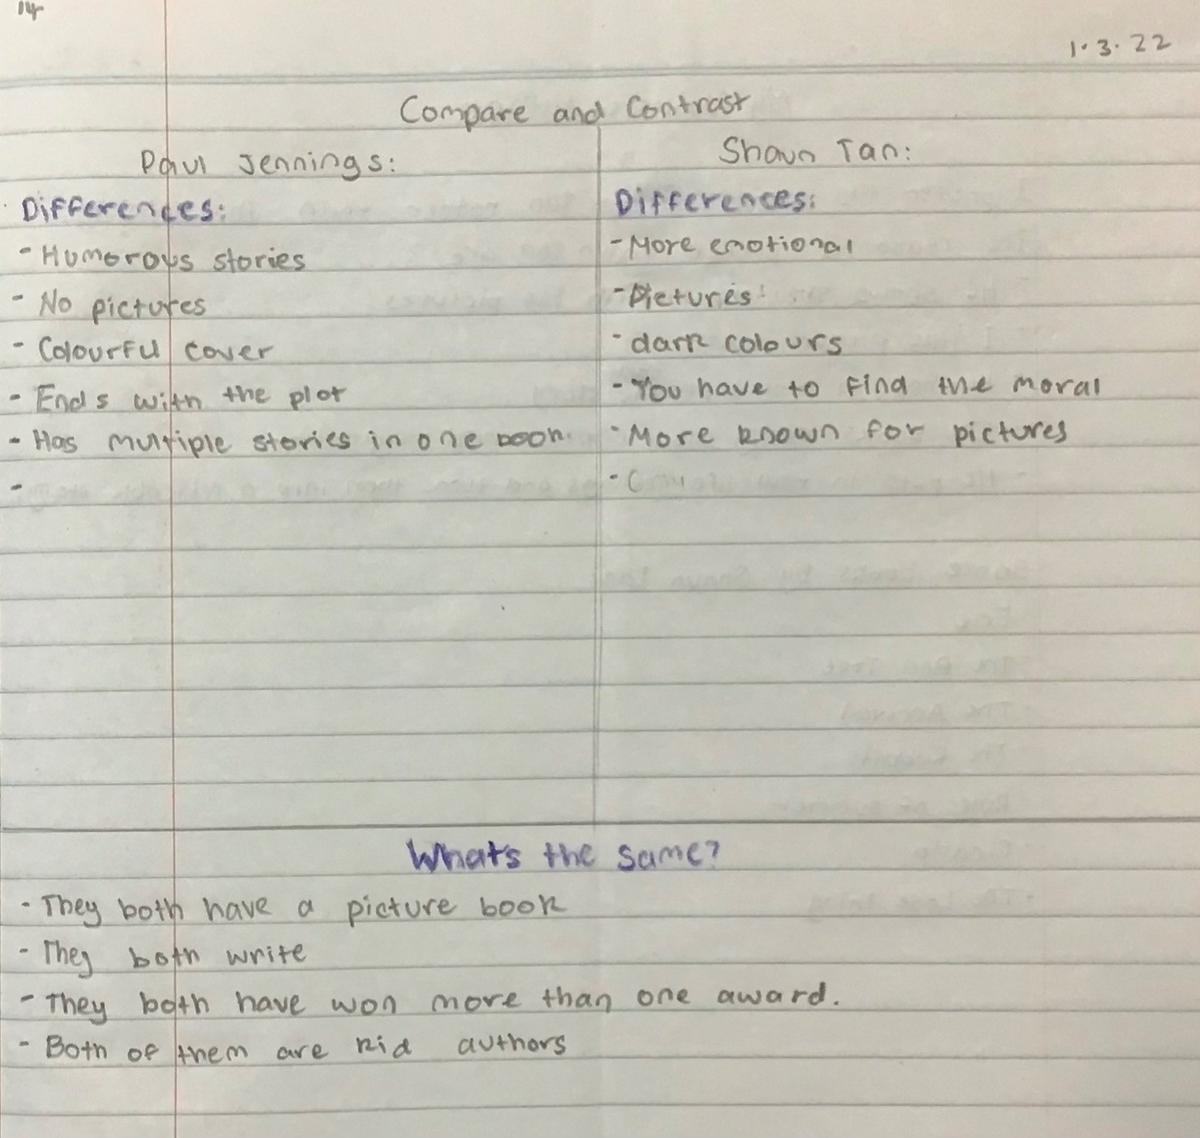 14
1.3.22
Compare and Contrast
Paul Jennings:
Differences:
- Humorous stories
- No pictures
- Colourful cover
- Ends with the plot
- Has multiple stories in one book.
-
Shaun Tan:
Differences:
- More emotional
- Pictures
- dark colours
- You have to find the moral
- More known for pictures
-
What's the same?
- They both have a picture book
- They both write
- They both have won more than one award.
- Both of them are kid authors